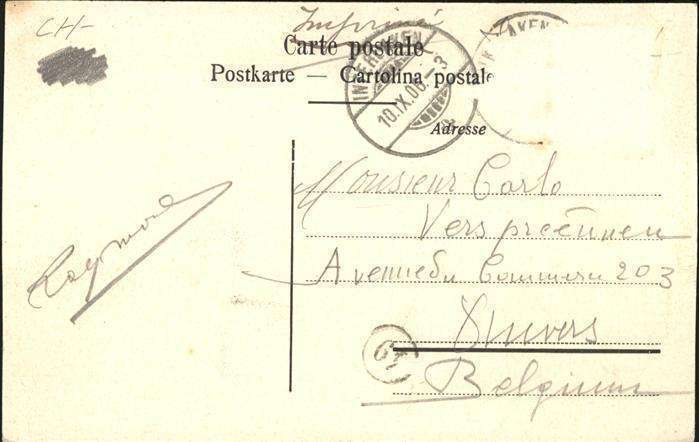 CH-
Imprimé
Carte postale
Postkarte — Cartolina postale
INTERLAKEN
10.IX.06.-3
LAKEN
Adresse
Monsieur Carlo
Verspreeuwen
Avenue du Commerce 203
Anvers
Belgium
Raymond
67